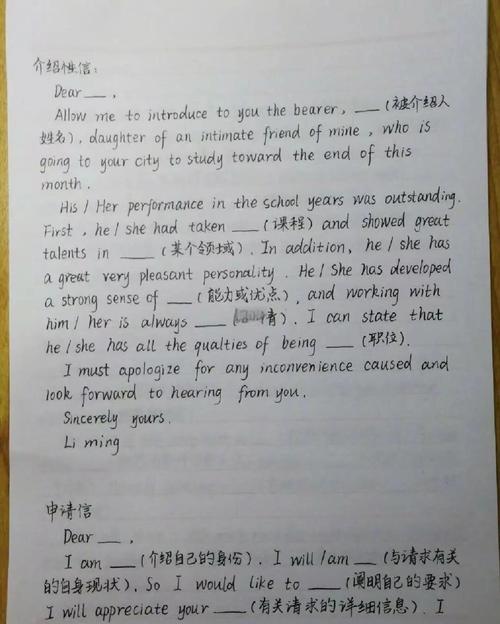 介绍性信:
Dear ___ ,
Allow me to introduce to you the bearer, ___ (被介绍人
姓名), daughter of an intimate friend of mine, who is
going to your city to study toward the end of this
month.
His / Her performance in the school years was outstanding.
First, he / she had taken ___ (课程) and showed great
talents in ___ (某个领域). In addition, he / she has
a great very pleasant personality. He / She has developed
a strong sense of ___ (能力或优点), and working with
him / her is always ___ ( 情). I can state that
he / she has all the qualties of being ___ (职位).
I must apologize for any inconvenience caused and
look forward to hearing from you.
Sincerely yours.
Li ming
申请信
Dear ___ ,
I am ___ (介绍自己的身份). I will / am ___ (与请求有关
的自身现状). So I would like to ___ (阐明自己的要求)
I will appreciate your ___ (有关请求的详细信息). I